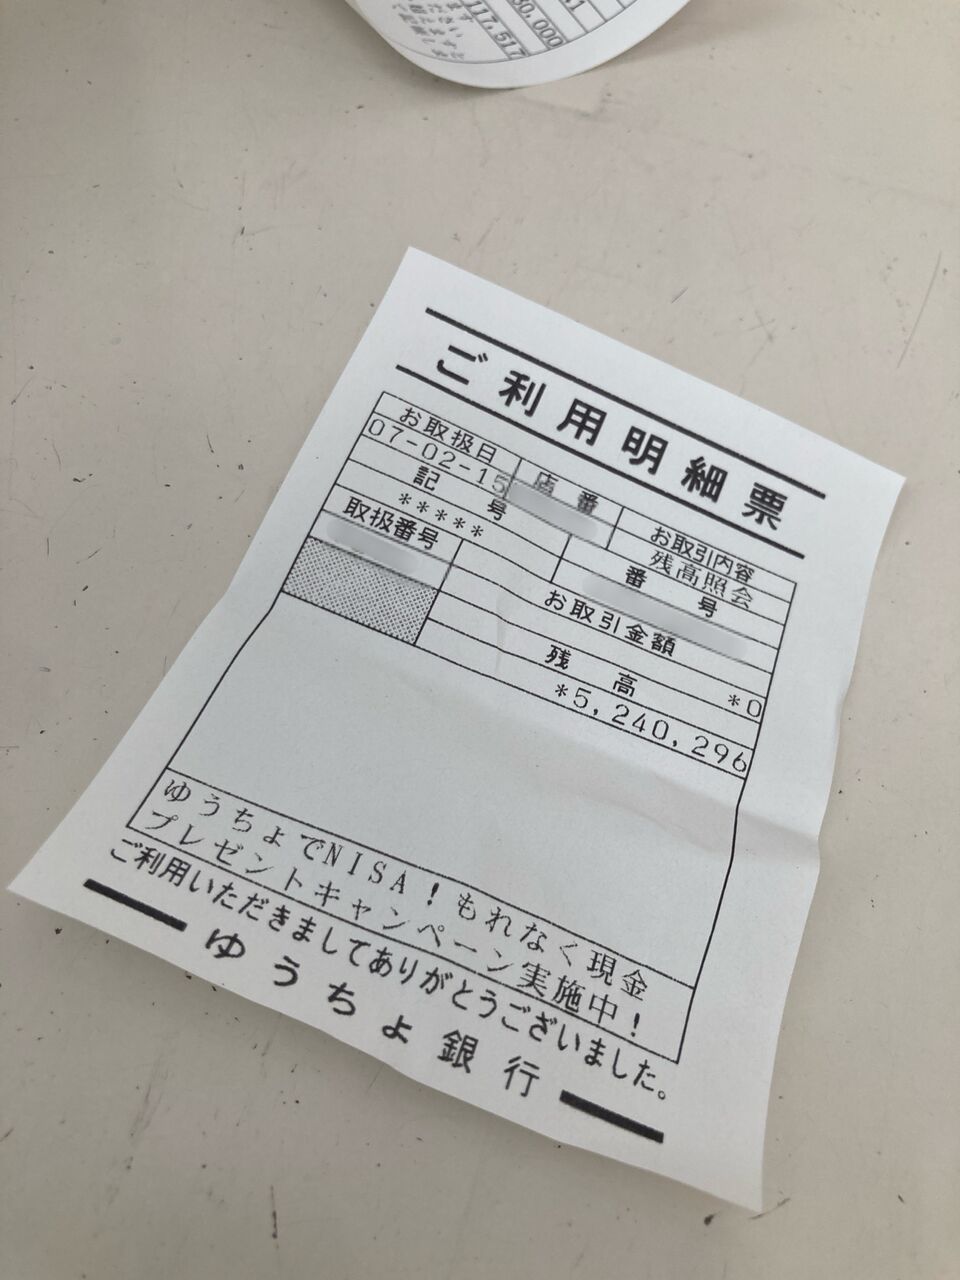 117,517
ご利用明細票
お取扱日 店番 お取引内容
07-02-15 残高照会
記号 番号
*****
取扱番号 お取引金額
*0
残高
*5,240,296
ゆうちょでNISA!もれなく現金
プレゼントキャンペーン実施中!
ご利用いただきましてありがとうございました。
ゆうちょ銀行